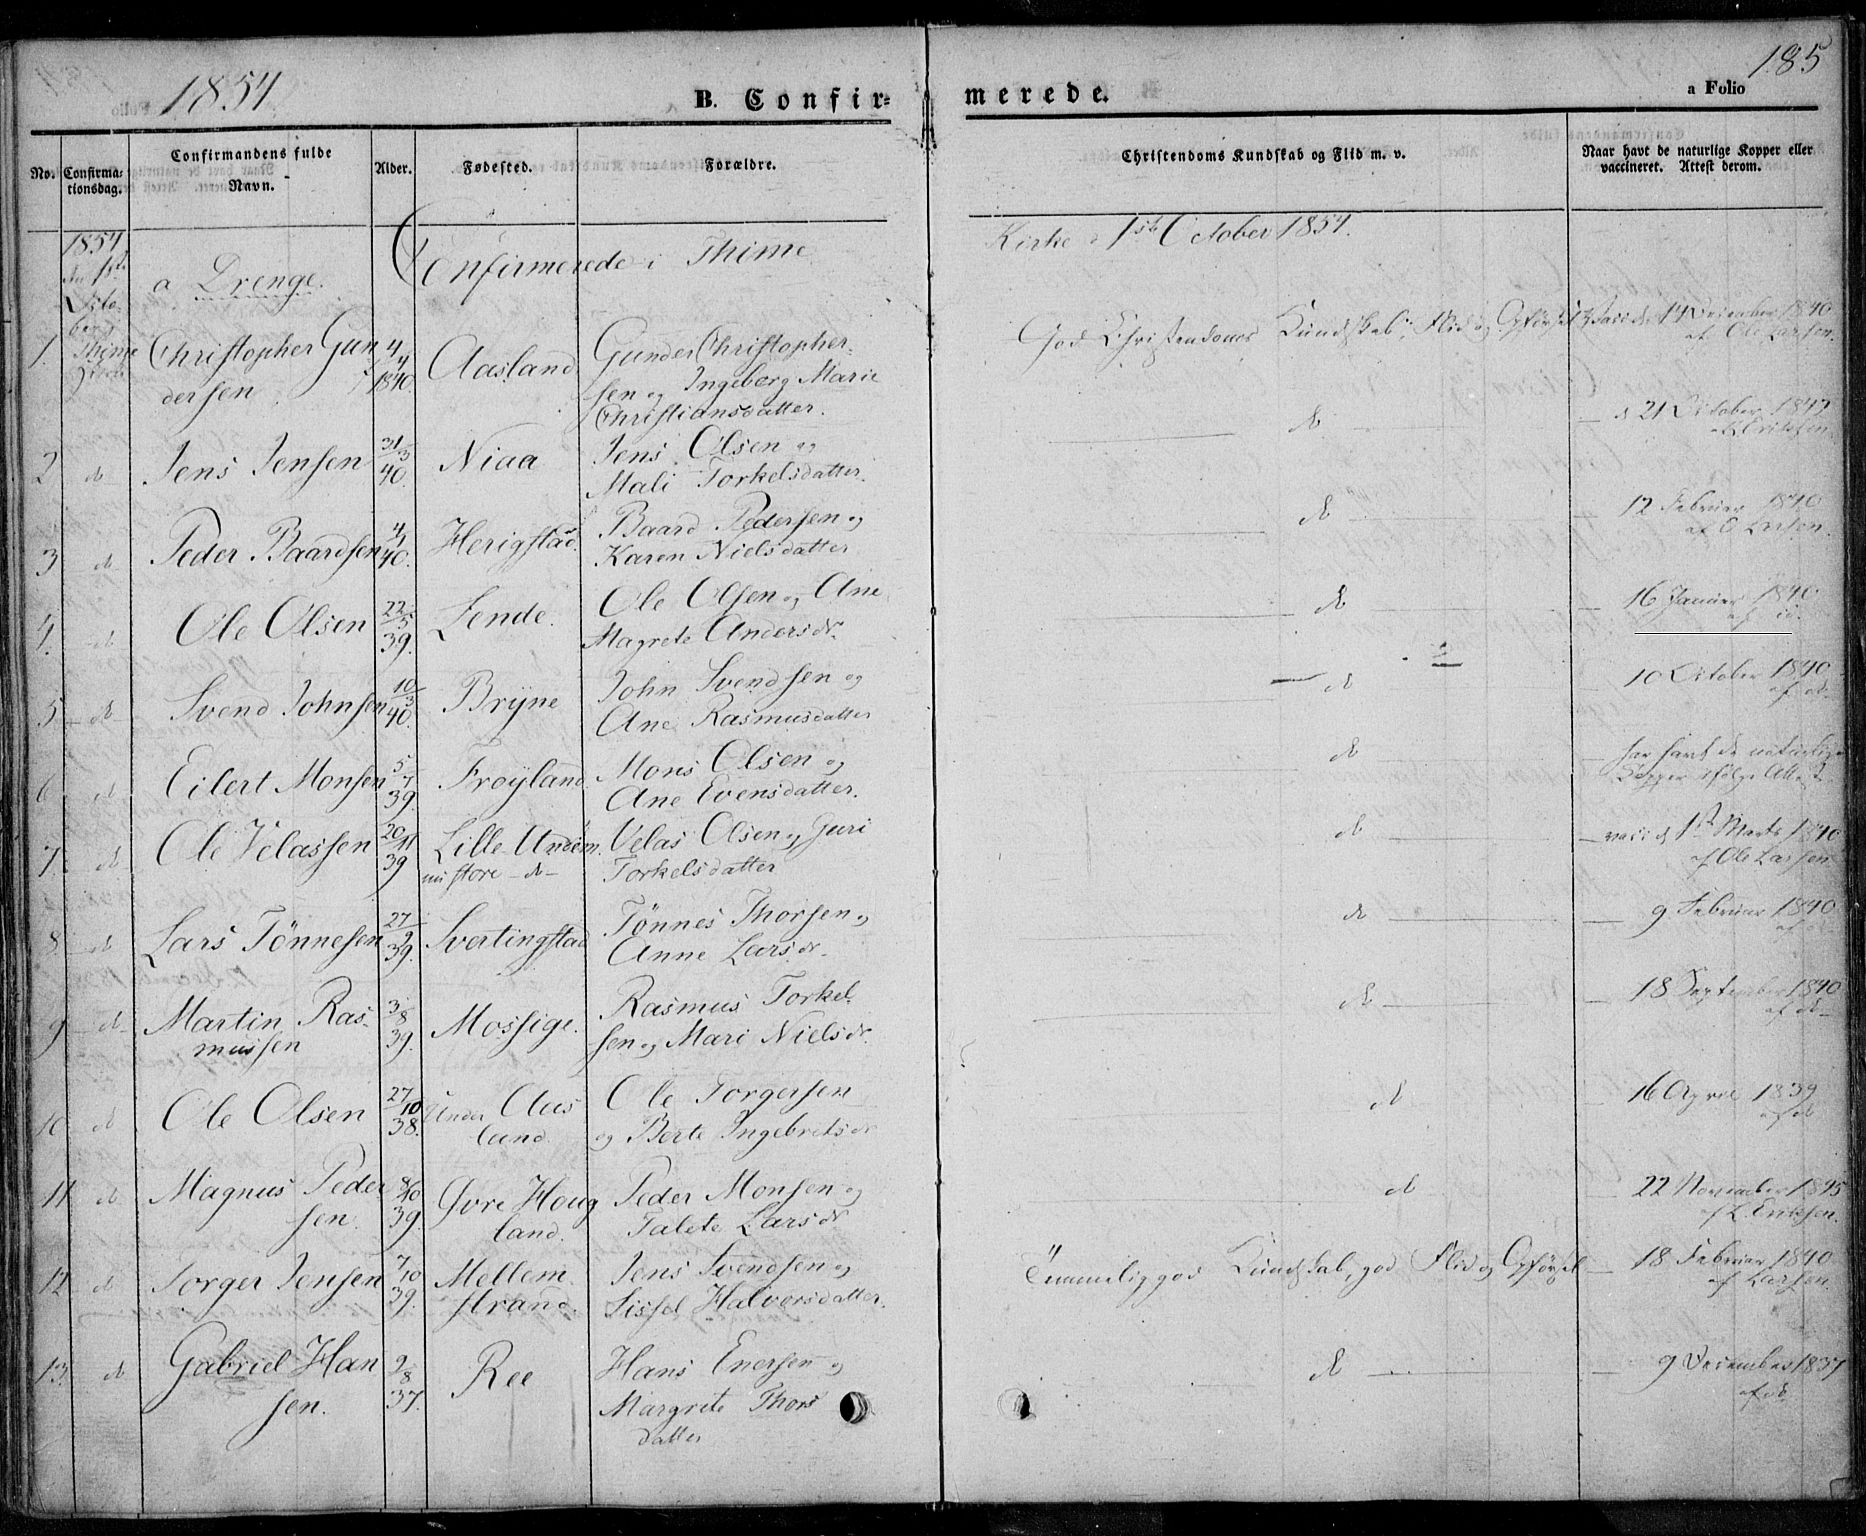 1854
185
B. Confir=
merede.
a Folio
No.
Confirma-
tionsdag.
Confirmandens fulde
Navn.
Alder.
Fødested.
Forældre.
Christendoms Kundskab og Flid m. v.
Naar havt de naturlige Kopper eller
vaccineret. Attest derom.
1854
a Drenge.
Confirmerede i Thime
Kirke 1ste October 1854.
1. Thime Christopher Gun 4/4 Aasland Gunder Christopher= God Christendoms Kundskab, Flid og Opførsel Vacc: d 14 December 1840
dersen 1840. sen og Ingeborg Marie af Ole Larsen.
Christiansdatter.
2 do Jens Jensen 31/3 Niaa Jens Olsen og do d 21 October 1847
40. Mali Torkelsdatter.
3 do Peder Baardsen 4/1 Herigstad. Baard Pedersen og do 12 Februar 1840
40. Karen Nielsdatter af O Larsen.
4. do Ole Olsen 22/5 Lende. Ole Olsen og Ane do 16 Januar 1840
39. Magrete Andersdr.
5 do Svend Johnsen 10/3 Bryne John Svendsen og do 10 October 1840
40. Ane Rasmusdatter af do
6 do Eilert Monsen 5/7 Frøyland. Mons Olsen og do har havt de naturlige
39. Ane Evensdatter. Kopper ifølge Attest
7. do Ole Velassen 20/11 Lille Undem. Velas Olsen og Guri do vacc d 1st Marts 1840
39 nu store do Torkelsdatter af Ole Larsen
8. do Lars Tønnesen 27/9 Svertingstad Tønnes Thorsen og do 9 Februar 1840
39. Anne Larsdr. af do
9 do Martin Ras- 3/8 Mossige. Rasmus Torkel- do 18 September 1840
mussen 39. sen og Mari Nielsdr. af do
10 do Ole Olsen 27/10 Under Aas Ole Torgersen do 16 April 1839
38. land og Berte Ingebretsdr af do
11 do Magnus Peder 8/10 Øvre Houg Peder Monsen og do 22 November 1845
sen. 39. land. Talete Larsdr af L. Eriksen.
12 do Torger Jensen 7/10 Mellem Jens Svendsen og Temmelig god Kundskab, god Flid og Opførsel 18 Februar 1840
39. strand. Sissel Halvorsdatter. af Larsen.
13. do Gabriel Han 2/8 Ree Hans Enersen og do 9 December 1837
sen. 37. Margrete Thors af do
datter